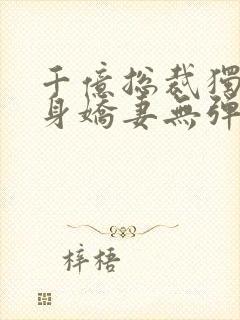 千億总裁獨
身嬌妻無彈
梓梧